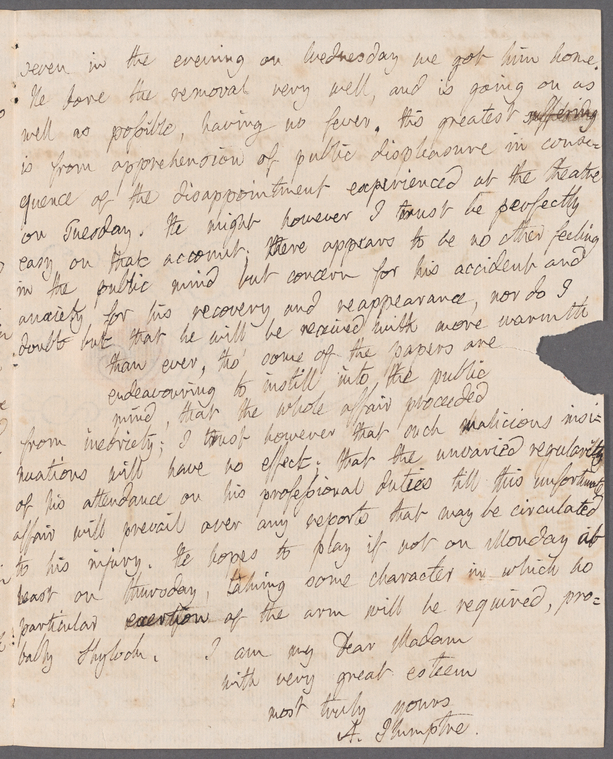 seven in the evening on Wednesday we got him home.
He bore the removal very well, and is going on as
well as possible, having no fever. His greatest suffering
is from apprehension of public displeasure in conse=
quence of the disappointment experienced at the theatre
on Tuesday. He might however I trust be perfectly
easy on that account; there appears to be no other feeling
in the public mind but concern for his accident and
anxiety for his recovery and reappearance, nor do I
doubt but that he will be received with more warmth
than ever, tho' some of the papers are
endeavouring to instill into, the public
mind, that the whole affair proceeded
from inebriety; I trust however that such malicious insi=
nuations will have no effect: that the unvaried regularity
of his attendance on his professional duties till this unfortunate
affair will prevail over any reports that may be circulated
to his injury. He hopes to play if not on Monday at
least on thursday, taking some character in which no
particular exertion of the arm will be required, pro=
bably Shylock. I am my Dear Madam
with very great esteem
most truly yours
A. Plumptre.